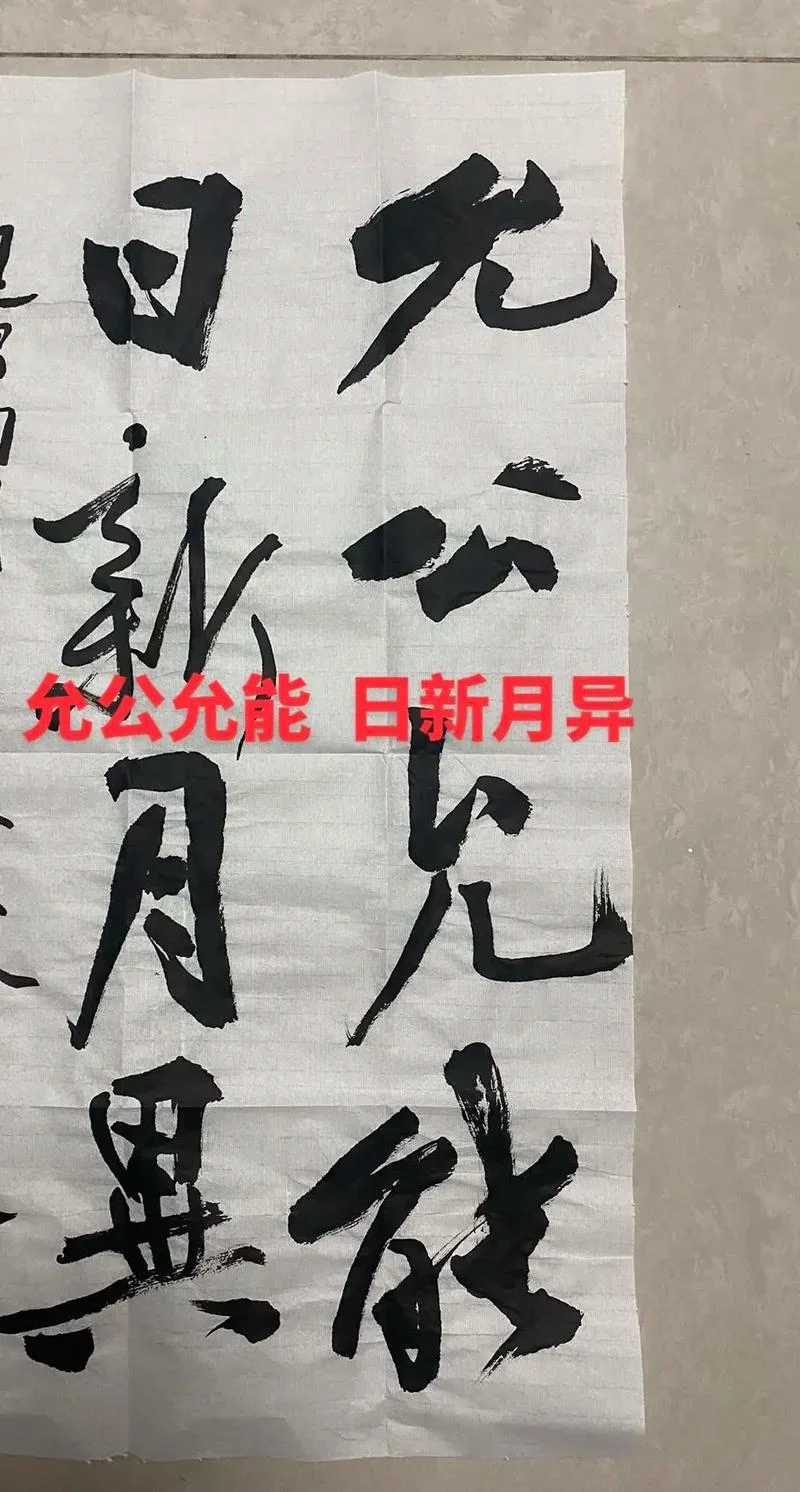 允公允能
日新月異
允公允能 日新月异